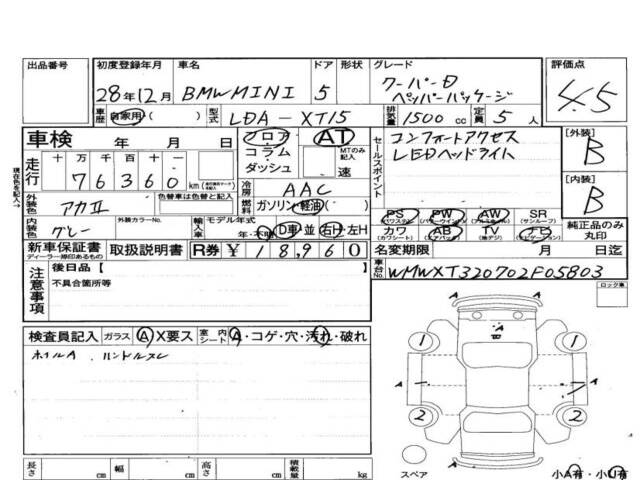 出品番号 初度登録年月 車名 ドア 形状 グレード 評価点
28年12月 BMWMINI 5 クーパーD ペッパーパッケージ 4.5
車歴 自家用( ) 型式 LDA-XT15 排気量 1500 cc 定員 5 人
車検 年 月 日 フロア AT コラム ダッシュ MTのみ記入 速
セールスポイント コンフォートアクセス
LEDヘッドライト
[外装] B
[内装] B
走行 十 万 千 百 十 一
76360 km
現状色を記入→
冷房 AAC
外装色 アカⅡ 色替車は色替と記入
燃料 ガソリン・軽油・( )
内装色 グレー 外装カラーNo. 輸入車 モデル年式 年・不明 D車・並 右H・左H
PS (パワステ) PW (パワーウインド) AW (アルミホイール) SR (サンルーフ)
カワ (カワシート) AB (エアバック) TV (地デジ) ナビ (ナビゲーション) 純正品のみ丸印
新車保証書 ディーラー捺印あるもの 取扱説明書 R券 ¥18,960
名変期限 月 日迄
車台No. WMWXT320702F05803
注意事項 後日品【
不具合箇所等
ロック車
検査員記入 ガラス A X要ス 室内シート A・コゲ・穴・汚れ・破れ
ホイルA ハンドルスレ
A A
1 1
A A
2 2
長さ cm 幅 cm 高さ cm 積載量 kg
スペア 小A有・小U有